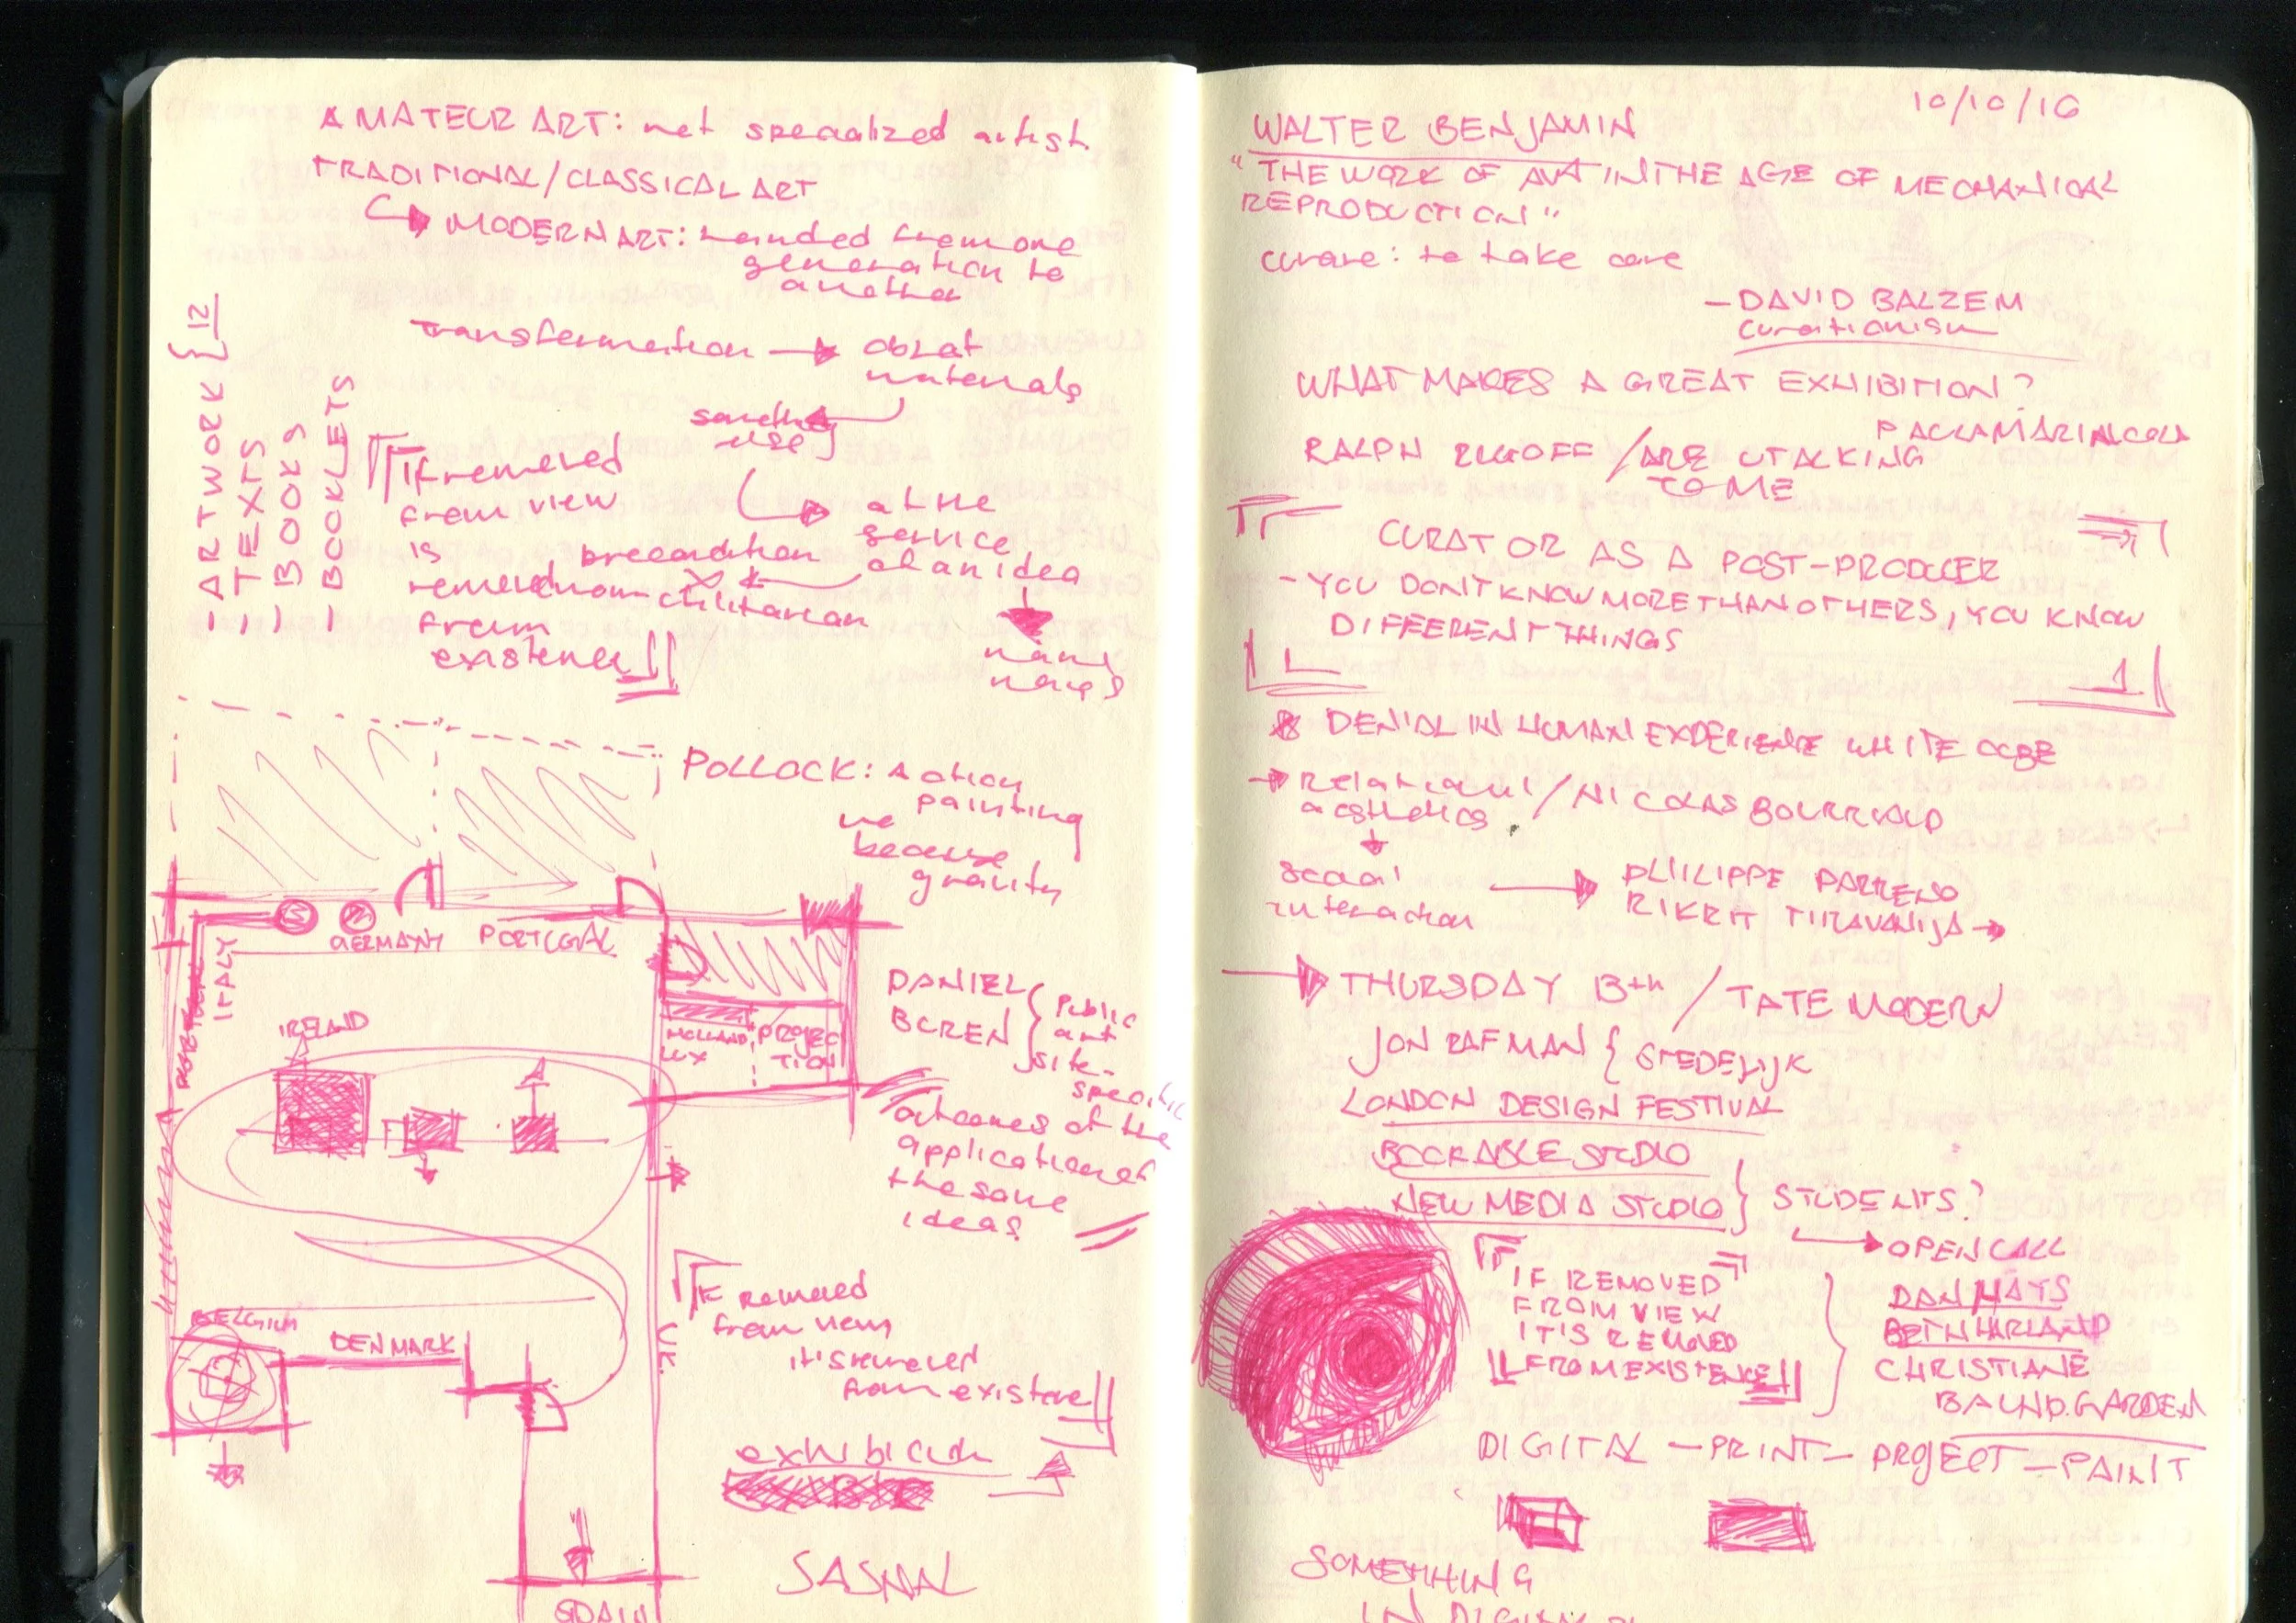 AMATEUR ART: not specialized artist.
TRADITIONAL/CLASSICAL ART
MODERN ART: handed from one
generation to
another
transformation → object
materials
use
at the
service
of an idea
precondition
non utilitarian
12
- ARTWORK
- TEXTS
- BOOKS
- BOOKLETS
If removed
from view
is
removed
from
existence
POLLOCK: Action
painting
because
gravity
GERMANY
PORTUGAL
ITALY
IRELAND
HOLLAND
LUX
PROJEC
TION
DANIEL
BUREN
Public
art
site-
specific
outcomes of the
application of
the same
ideas
BELGIUM
DENMARK
U.K.
SPAIN
If removed
from view
it's removed
from existence
SASNAL
10/10/16
WALTER BENJAMIN
"THE WORK OF ART IN THE AGE OF MECHANICAL
REPRODUCTION"
curare: to take care
- DAVID BALZEM
curationism
WHAT MAKES A GREAT EXHIBITION?
PAULA MARINCOLA
RALPH RUGOFF / ARE U TALKING
TO ME
CURATOR AS A POST-PRODUCER
- YOU DON'T KNOW MORE THAN OTHERS, YOU KNOW
DIFFERENT THINGS
DENIAL IN HUMAN EXPERIENCE WHITE CUBE
→ Relational / NICOLAS BOURRIAUD
aesthetics
social
interaction
→ PHILIPPE PARRENO
RIKRIT TIRAVANIJA →
→ THURSDAY 13th / TATE MODERN
JON RAFMAN { STEDELIJK
LONDON DESIGN FESTIVAL
BOOKABLE STUDIO
NEW MEDIA STUDIO } STUDENTS?
→ OPEN CALL
IF REMOVED
FROM VIEW
IT'S REMOVED
FROM EXISTENCE
DAN HAYS
BETH HARLAND
CHRISTIANE
BAUMGARDEN
DIGITAL - PRINT - PROJECT - PAINT
SOMETHING